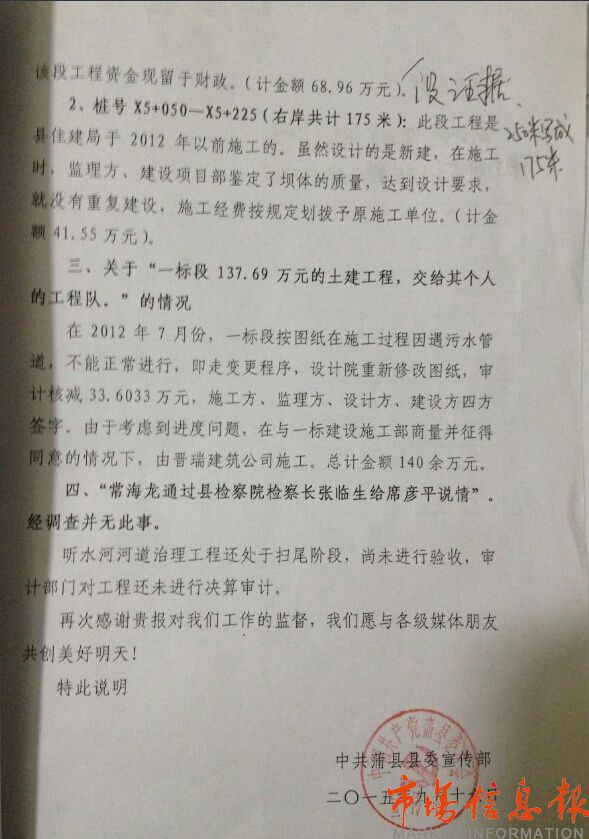 该段工程资金现留于财政。（计金额 68.96 万元）。
没证据
2、桩号 X5+050—X5+225（右岸共计 175 米）：此段工程是
县住建局于 2012 年以前施工的。虽然设计的是新建，在施工
250米写成
175米
时，监理方、建设项目部鉴定了坝体的质量，达到设计要求，
就没有重复建设，施工经费按规定划拨予原施工单位。（计金
额 41.55 万元）。
三、关于“一标段 137.69 万元的土建工程，交给其个人
的工程队。”的情况
在 2012 年 7 月份，一标段按图纸在施工过程因遇污水管
道，不能正常进行，即走变更程序，设计院重新修改图纸，审
计核减 33.6033 万元，施工方、监理方、设计方、建设方四方
签字。由于考虑到进度问题，在与一标建设施工部商量并征得
同意的情况下，由晋瑞建筑公司施工。总计金额 140 余万元。
四、“常海龙通过县检察院检察长张临生给席彦平说情”。
经调查并无此事。
昕水河河道治理工程还处于扫尾阶段，尚未进行验收，审
计部门对工程还未进行决算审计。
再次感谢贵报对我们工作的监督，我们愿与各级媒体朋友
共创美好明天！
特此说明
中共蒲县县委宣传部
二〇一五年九月十六日
市场信息报
MARKET INFORMATION